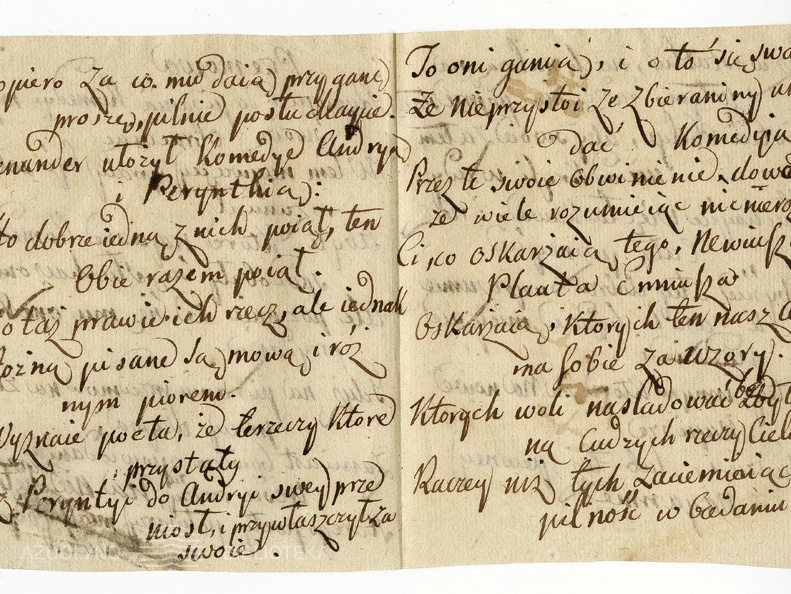 opiero za co mu daią przyganę
proszę, pilnie posłuchaycie.
enander ułożył Komedye Andryą
i Perynthią:
to dobrze iedną z nich poiął, ten
Obie razem poiął.
taż prawie ich rzecz, ale iednak
różną pisane są mową i róż
nym piorem.
Wyznaie poeta, że te rzeczy które
przystały
z Peryntyi do Andryi swey prze
niosł, i przywłaszczył za
swoie.
To oni ganią, i o to się swa
Że nieprzystoi ze zbieraniny
dać Komedyia
Przez te swoie obwinienie dowo
że wiele rozumieiąc nic nieroz
Ci, co oskarżaią tego, Newiusza
Plauta Enniusza
Oskarżaią, których ten nasz
ma sobie za wzory.
Ktorych woli nasladować zbyt
na cudzych rzeczy
Raczey niż tych zaciemiaiąc
pilność w badaniu